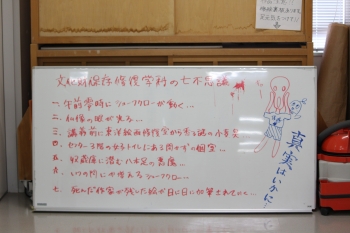 文化財保存修復学科の七不思議
一、午前零時にシャーフクローが動く…
二、仏像の眼が光る…
三、講義前に東洋絵画修復室から香る謎の小
四、センター3階の女子トイレにある開かずの個室…
五、収蔵庫に潜む八本足の悪魔…
六、いつの間にか増えるシャーフクロー…
七、死んだ作家が残した絵が日に日に加筆されていく…
真実はいかに